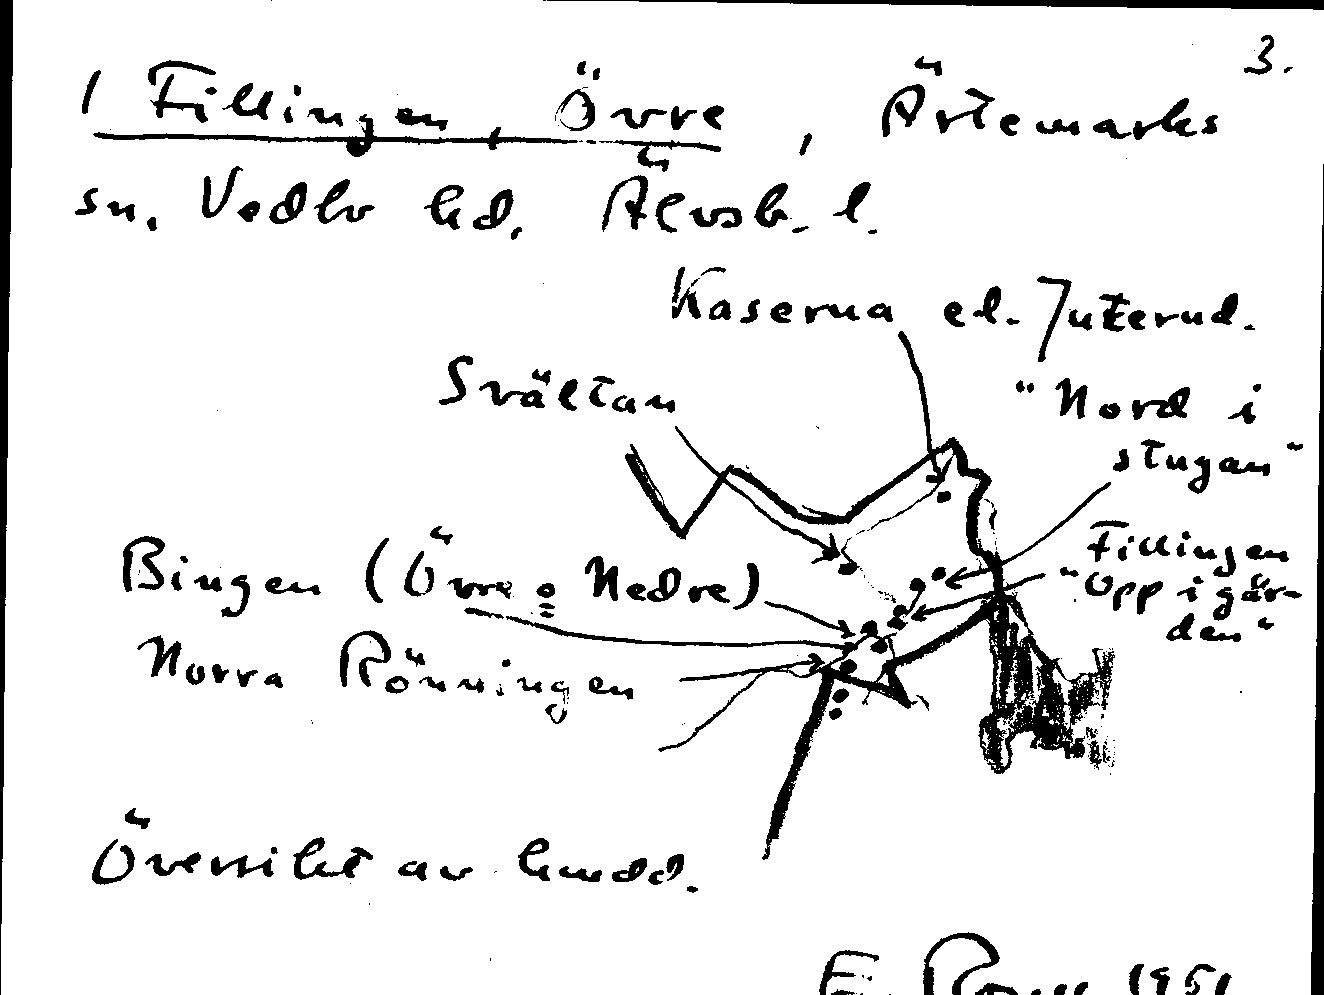 3.
1 Fillingen, Övre, Ärtemarks
sn, Vedbo hd, Älvsb. l.
Kaserna el. Juterud.
Svältan
"Nord i
stugan"
Bingen (Övre o Nedre)
Fillingen
"Opp i går-
den"
Norra Rönningen
Översikt av hmdd.
E. 1951